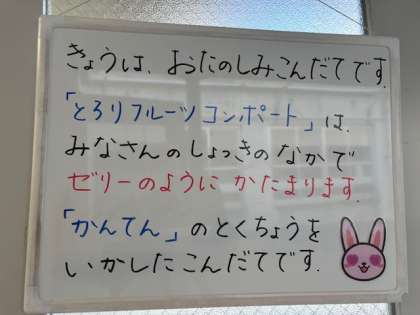 きょうは、おたのしみこんだてです.
「とろりフルーツコンポート」は、
みなさんのしょっきのなかで
ゼリーのように かたまります.
「かんてん」のとくちょうを
いかしたこんだてです.